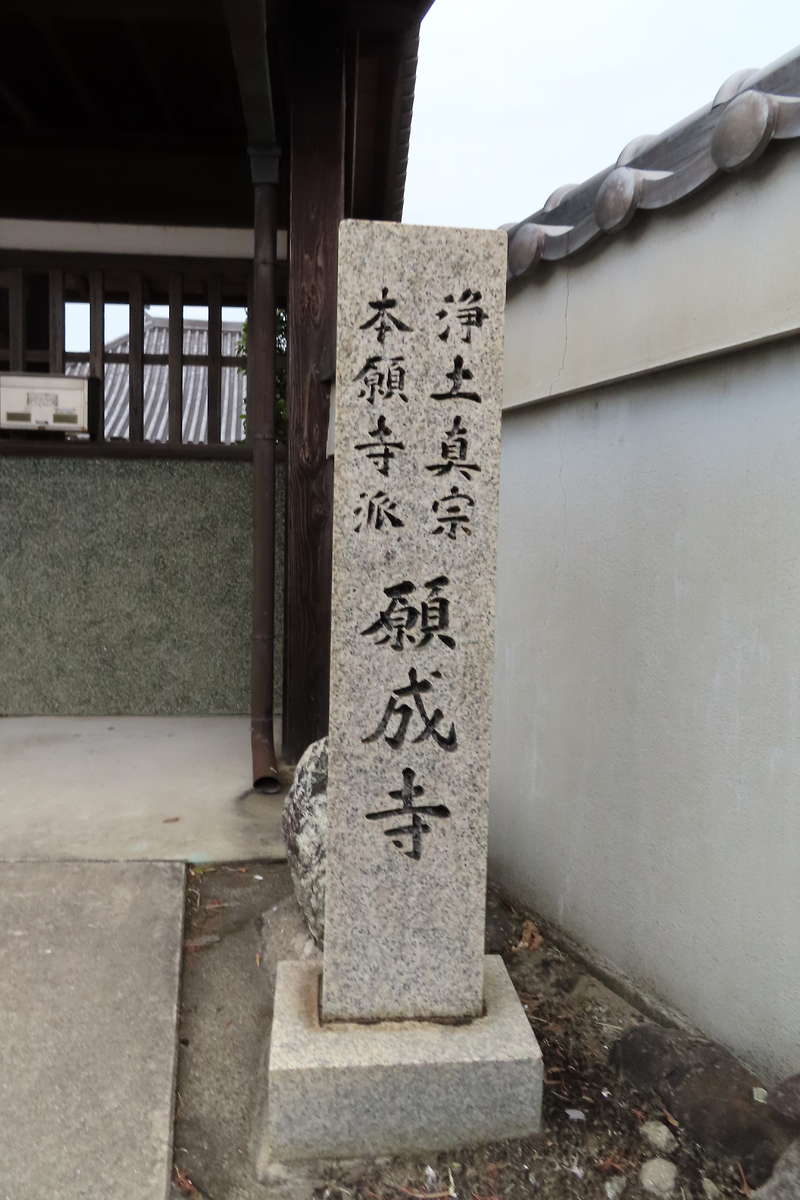 浄土真宗
本願寺派
願成寺